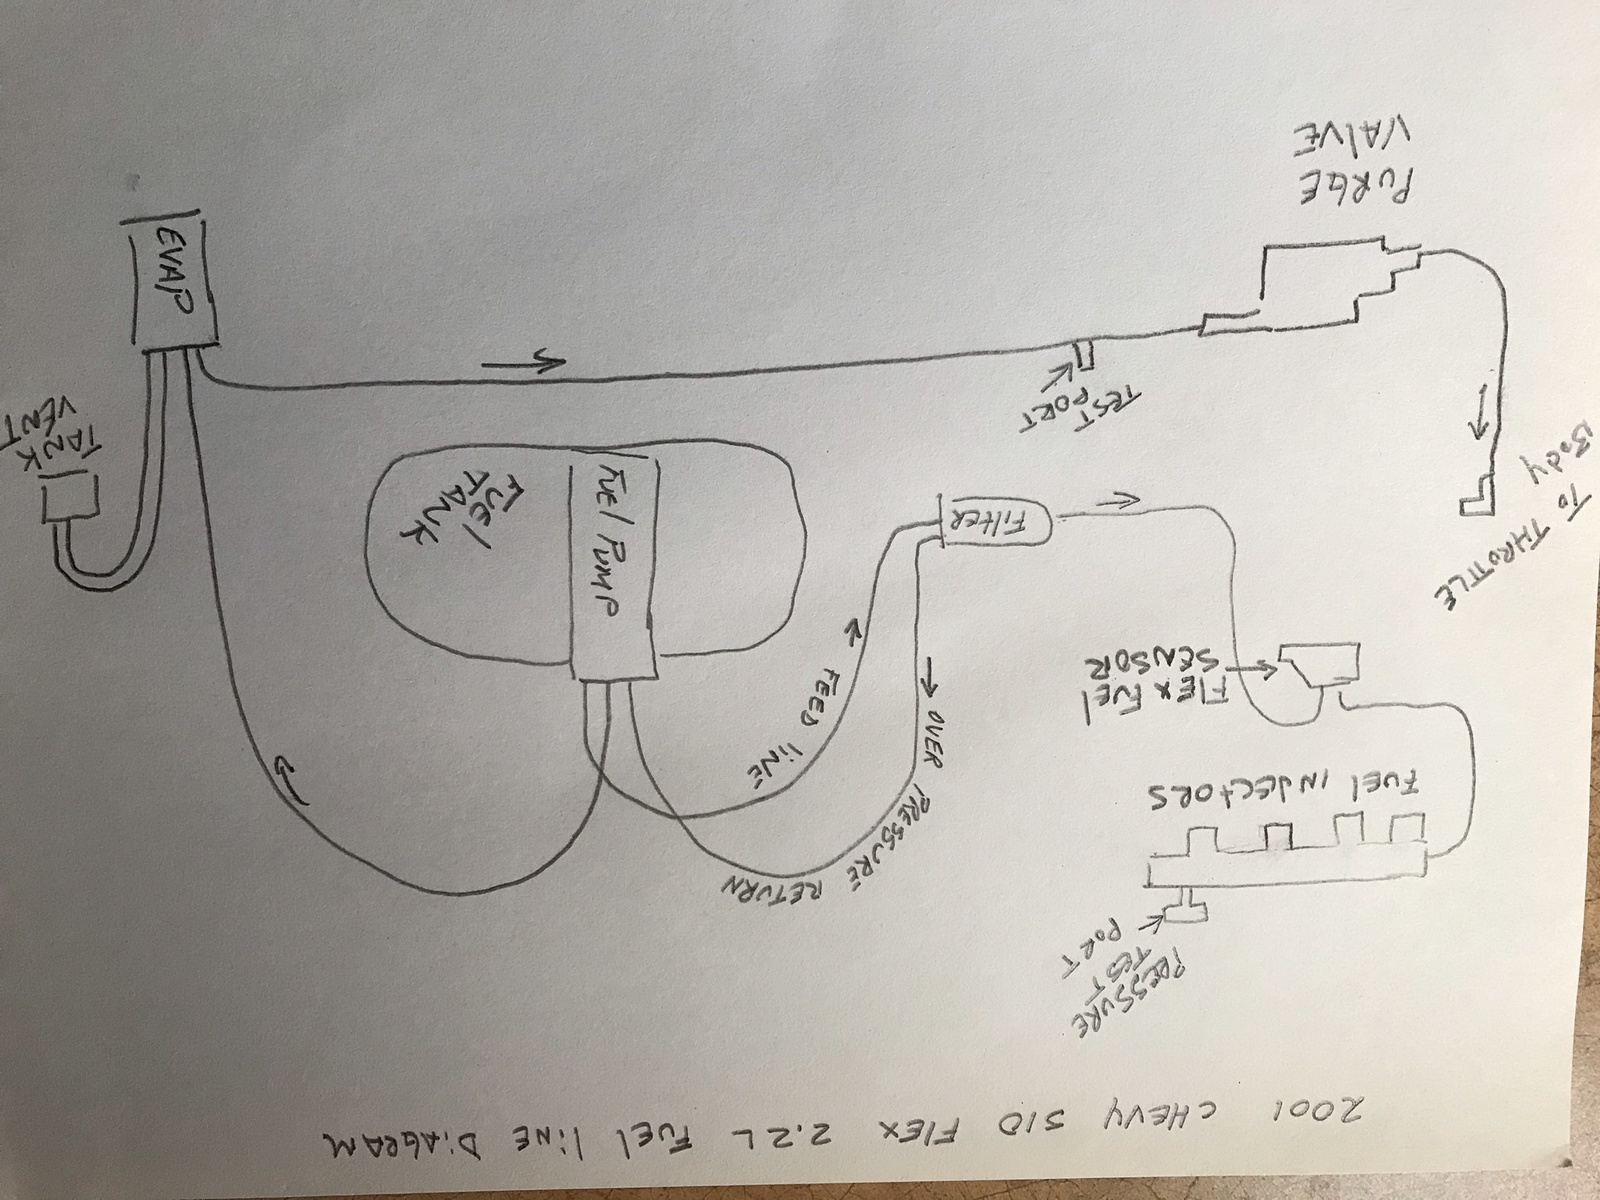 2001 CHEVY S10 FLEX 2.2L FUEL liNE DiAGRAM
PRESSURE
TEST
PORT
FUEL INJECTORS
FLEX FUEL
SENSOR
TO THROTTLE
BODY
PURGE
VALVE
TEST
PORT
FiltER
FEED liNE
OVER PRESSURE RETURN
FUEL PUMP
FUEL
TANK
EVAP
TANK
VENT